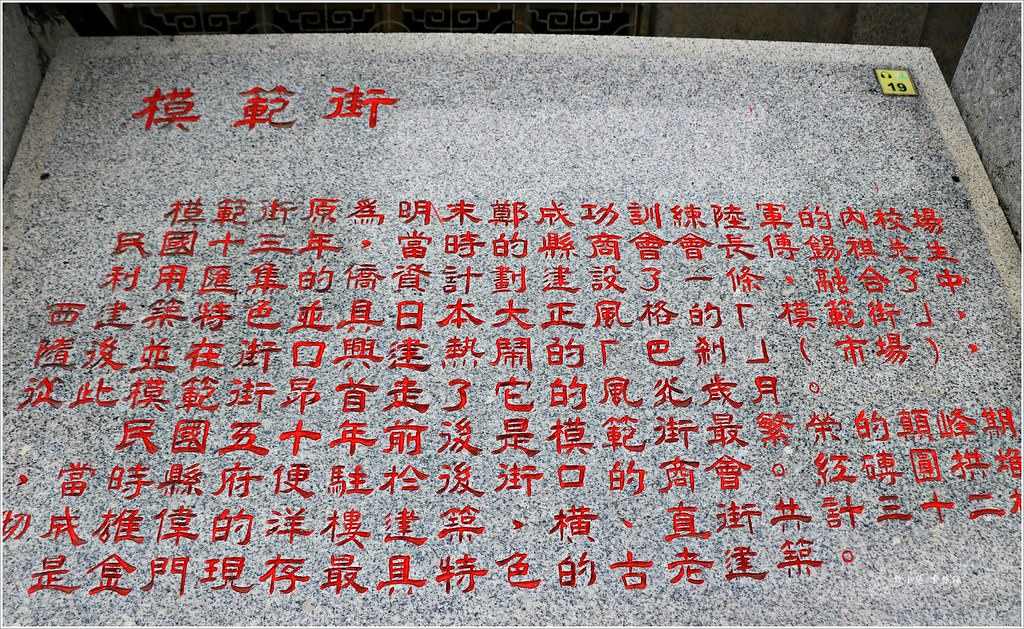 模範街
19
模範街原為明末鄭成功訓練陸軍的內校場
民國十三年，當時的縣商會會長傅錫祺先生
利用匯集的僑資計劃建設了一條、融合了中
西建築特色並具日本大正風格的「模範街」，
隨後並在街口興建熱鬧的「巴剎」（市場），
從此模範街昂首走了它的風光歲月。
民國五十年前後是模範街最繁榮的顛峰期
，當時縣府便駐於後街口的商會。紅磚圓拱堆
砌成雄偉的洋樓建築，橫、直街共計三十二
是金門現存最具特色的古老建築。